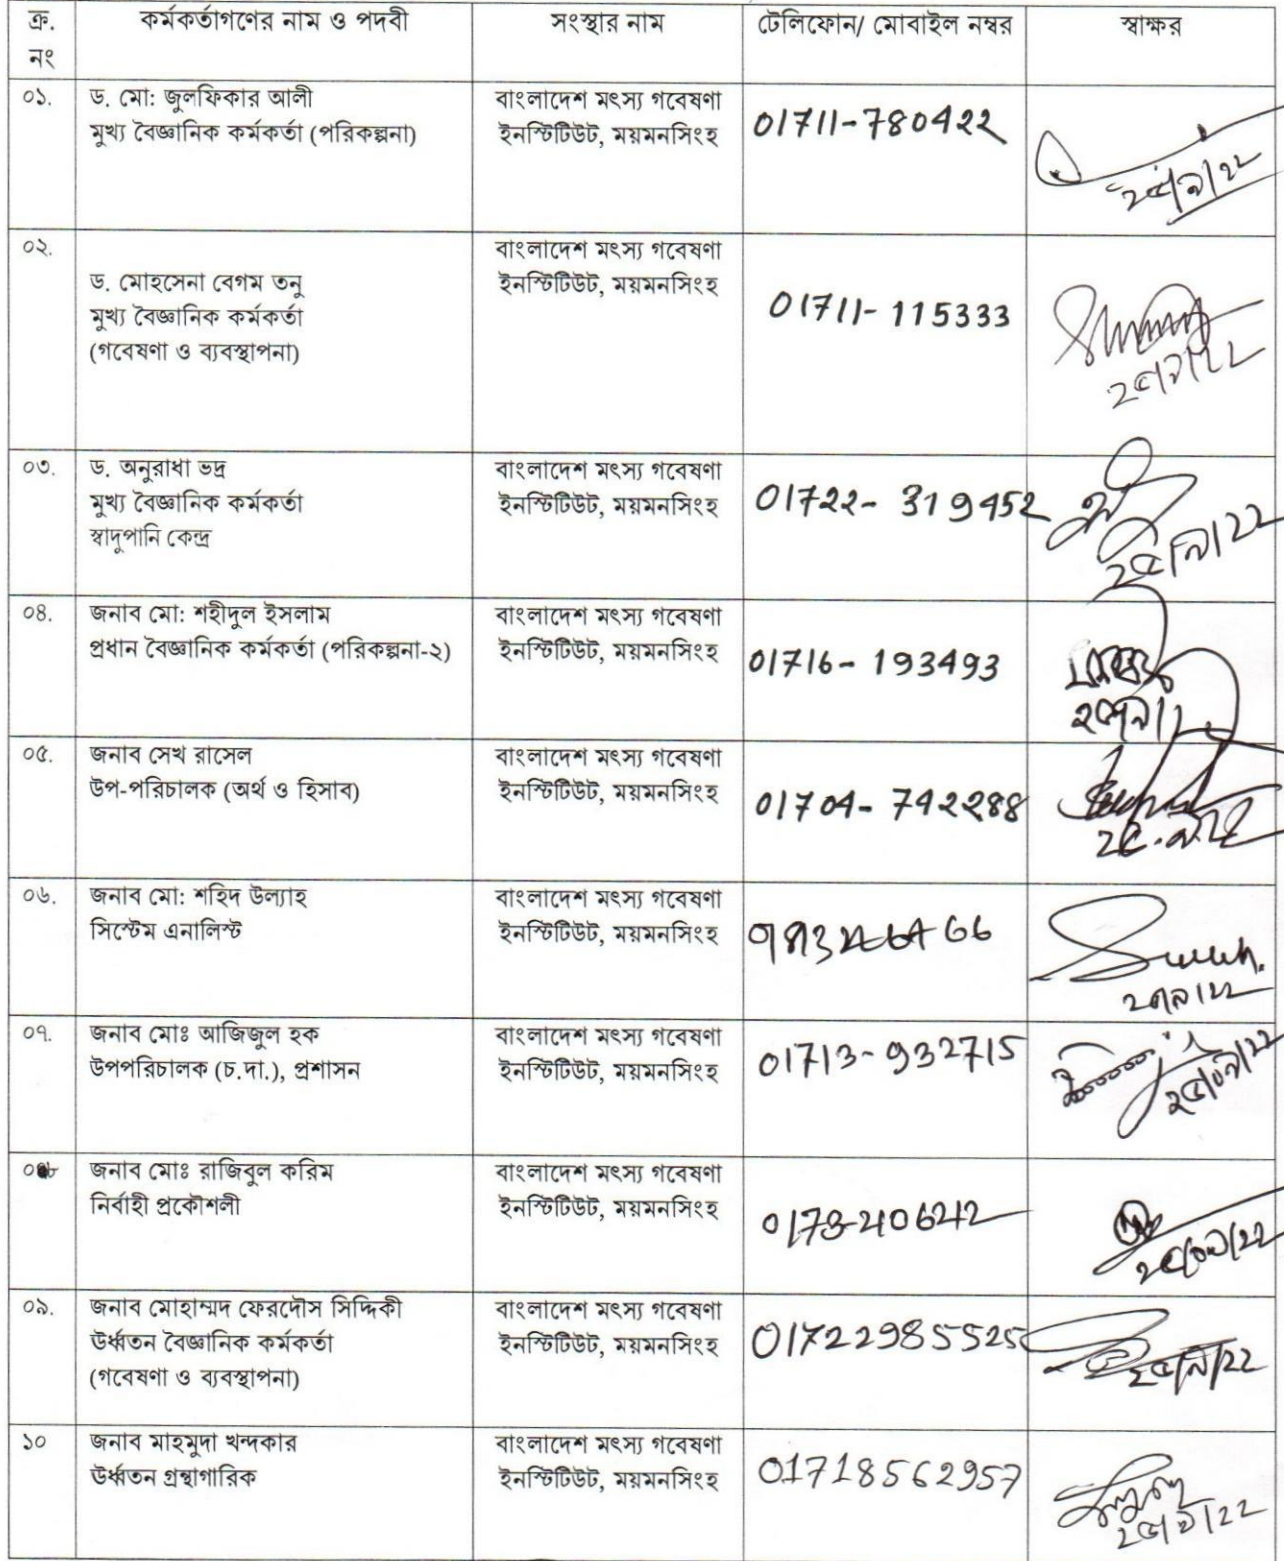 ক্র. নং কর্মকর্তাগণের নাম ও পদবী সংস্থার নাম টেলিফোন/ মোবাইল নম্বর স্বাক্ষর
০১. ড. মো: জুলফিকার আলী
মুখ্য বৈজ্ঞানিক কর্মকর্তা (পরিকল্পনা)
বাংলাদেশ মৎস্য গবেষণা
ইনস্টিটিউট, ময়মনসিংহ
01711-780422
২৫/৯/২২
০২. ড. মোহসেনা বেগম তনু
মুখ্য বৈজ্ঞানিক কর্মকর্তা
(গবেষণা ও ব্যবস্থাপনা)
বাংলাদেশ মৎস্য গবেষণা
ইনস্টিটিউট, ময়মনসিংহ
01711-115333
২৫/৯/২২
০৩. ড. অনুরাধা ভদ্র
মুখ্য বৈজ্ঞানিক কর্মকর্তা
স্বাদুপানি কেন্দ্র
বাংলাদেশ মৎস্য গবেষণা
ইনস্টিটিউট, ময়মনসিংহ
01722-319452
২৫/৯/২২
০৪. জনাব মো: শহীদুল ইসলাম
প্রধান বৈজ্ঞানিক কর্মকর্তা (পরিকল্পনা-২)
বাংলাদেশ মৎস্য গবেষণা
ইনস্টিটিউট, ময়মনসিংহ
01716-193493
০৫. জনাব সেখ রাসেল
উপ-পরিচালক (অর্থ ও হিসাব)
বাংলাদেশ মৎস্য গবেষণা
ইনস্টিটিউট, ময়মনসিংহ
01704-742288
২৫.৯.২২
০৬. জনাব মো: শহিদ উল্যাহ
সিস্টেম এনালিস্ট
বাংলাদেশ মৎস্য গবেষণা
ইনস্টিটিউট, ময়মনসিংহ
০৭. জনাব মোঃ আজিজুল হক
উপপরিচালক (চ.দা.), প্রশাসন
বাংলাদেশ মৎস্য গবেষণা
ইনস্টিটিউট, ময়মনসিংহ
01713-932715
২৫/০৯/২২
০৮ জনাব মোঃ রাজিবুল করিম
নির্বাহী প্রকৌশলী
বাংলাদেশ মৎস্য গবেষণা
ইনস্টিটিউট, ময়মনসিংহ
২৫/০৯/২২
০৯. জনাব মোহাম্মদ ফেরদৌস সিদ্দিকী
উর্ধ্বতন বৈজ্ঞানিক কর্মকর্তা
(গবেষণা ও ব্যবস্থাপনা)
বাংলাদেশ মৎস্য গবেষণা
ইনস্টিটিউট, ময়মনসিংহ
01722985525
২৫/৯/২২
১০ জনাব মাহমুদা খন্দকার
উর্ধ্বতন গ্রন্থাগারিক
বাংলাদেশ মৎস্য গবেষণা
ইনস্টিটিউট, ময়মনসিংহ
01718562957
২৫/৯/২২